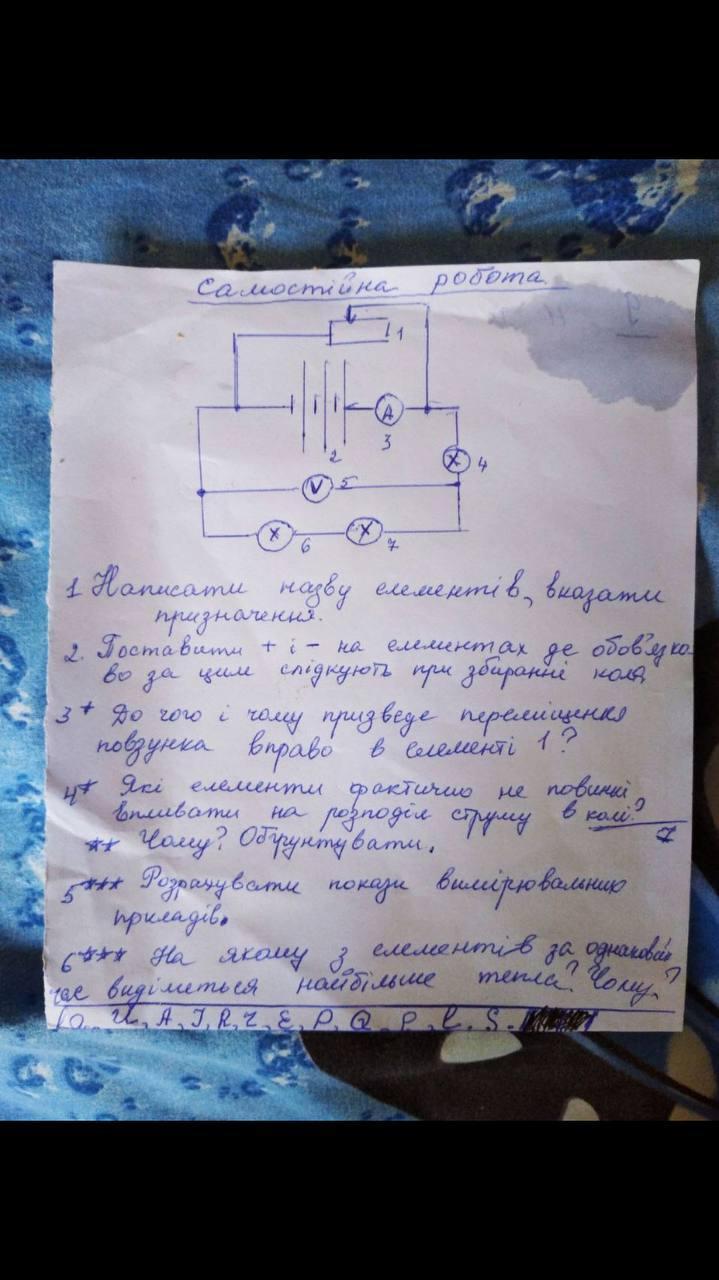 Самостійна робота
1
А
3
2
X 4
V 5
X 6
X 7
1 Написати назву елементів, вказати
призначення.
2. Поставити + і - на елементах де обов'язко-
во за цим слідкують при збиранні кола
3* До чого і чому призведе переміщення
повзунка вправо в елементі 1?
4* Які елементи фактично не повинні
впливати на розподіл струму в колі?
** Чому? Обґрунтувати.
5*** Розрахувати покази вимірювальних
приладів.
6*** На якому з елементів за однаковий
час виділиться найбільше тепла? Чому?
U, A, I, R, η, E, P, Q, ρ, l, S.